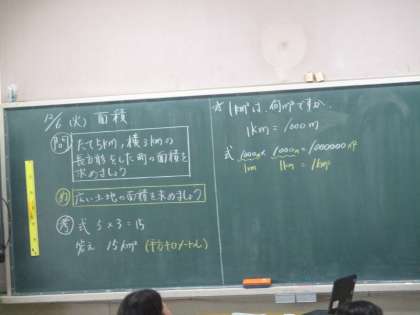 12/6 (火) 面積
問 たて5km、横3kmの
長方形をした町の面積を
求めましょう
め 広い土地の面積を求めましょう
考 式 5×3=15
答え 15km² (平方キロメートル)
☆ 1km²は、何m²ですか。
1km=1000m
式 1000m×1000m=1000000m²
1km 1km = 1km²